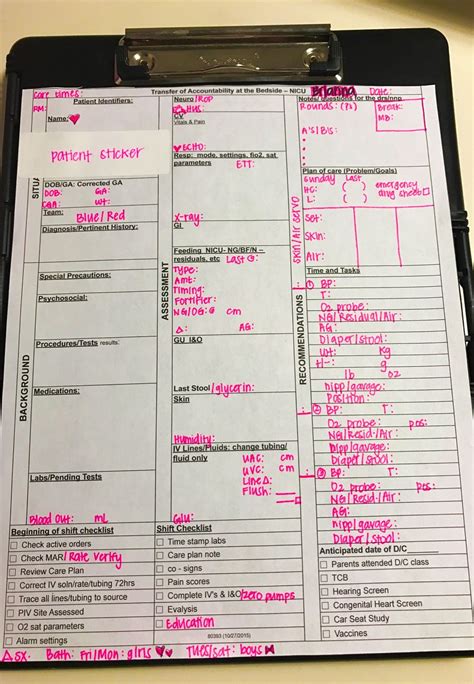 care times:
Transfer of Accountability at the Bedside – NICU Brianna Date:
RM:
Patient Identifiers:
Name:
patient sticker
DOB/GA: Corrected GA
DOB: GA:
CGA: WT:
Team:
Blue/Red
Diagnosis/Pertinent History:
Special Precautions:
Psychosocial:
Procedures/Tests results:
BACKGROUND
Medications:
Labs/Pending Tests
Blood Out: mL
Neuro/ROP
HUS:
CV
Vitals & Pain
ECHO:
Resp: mode, settings, fio2, sat
parameters ETT:
X-ray:
GI
ASSESSMENT
Feeding NICU- NG/BF/N –
residuals, etc Last @:
Type:
Amt:
Timing:
Fortifier:
NG/OG: @ cm
Δ: AG:
GU I&O
Last Stool/glycerin:
Skin
Humidity:
IV Lines/Fluids: change tubing/
fluid only
UAC: cm
UVC: cm
Line Δ:
Flush:
Glu:
Notes/questions for the drs/nnp
Rounds: (Ps)
Break:
MB:
A'S|B'S:
Plan of care (Problem/Goals)
Sunday Last
HC: ( )
L: ( )
emergency
drug sheet
Skin/Air servo
Set:
Skin:
Air:
Time and Tasks
RECOMMENDATIONS
① BP: T:
O2 probe:
NG/Residual/Air:
AG:
Diaper/stool:
wt: kg
+/-: g
lb oz
nipp/gavage:
Position:
② BP: T:
O2 probe: pos:
NG/Resid/Air:
nipp/gavage:
Diaper/stool:
③ BP: T:
O2 probe: pos:
NG/Resid/Air:
AG:
nipp/gavage:
Diaper/Stool:
Beginning of shift checklist
Check active orders
Check MAR/Rate verify
Review Care Plan
Correct IV soln/rate/tubing 72hrs
Trace all lines/tubing to source
PIV Site Assessed
O2 sat parameters
Alarm settings
Shift Checklist
Time stamp labs
Care plan note
co - signs
Pain scores
Complete IV's & I&O/zero pumps
Evalysis
Education
80393 (10/27/2015)
Anticipated date of D/C
Parents attended D/C class
TCB
Hearing Screen
Congenital Heart Screen
Car Seat Study
Vaccines
Δ SX: Bath: Fri/Mon: girls Tues/sat: boys